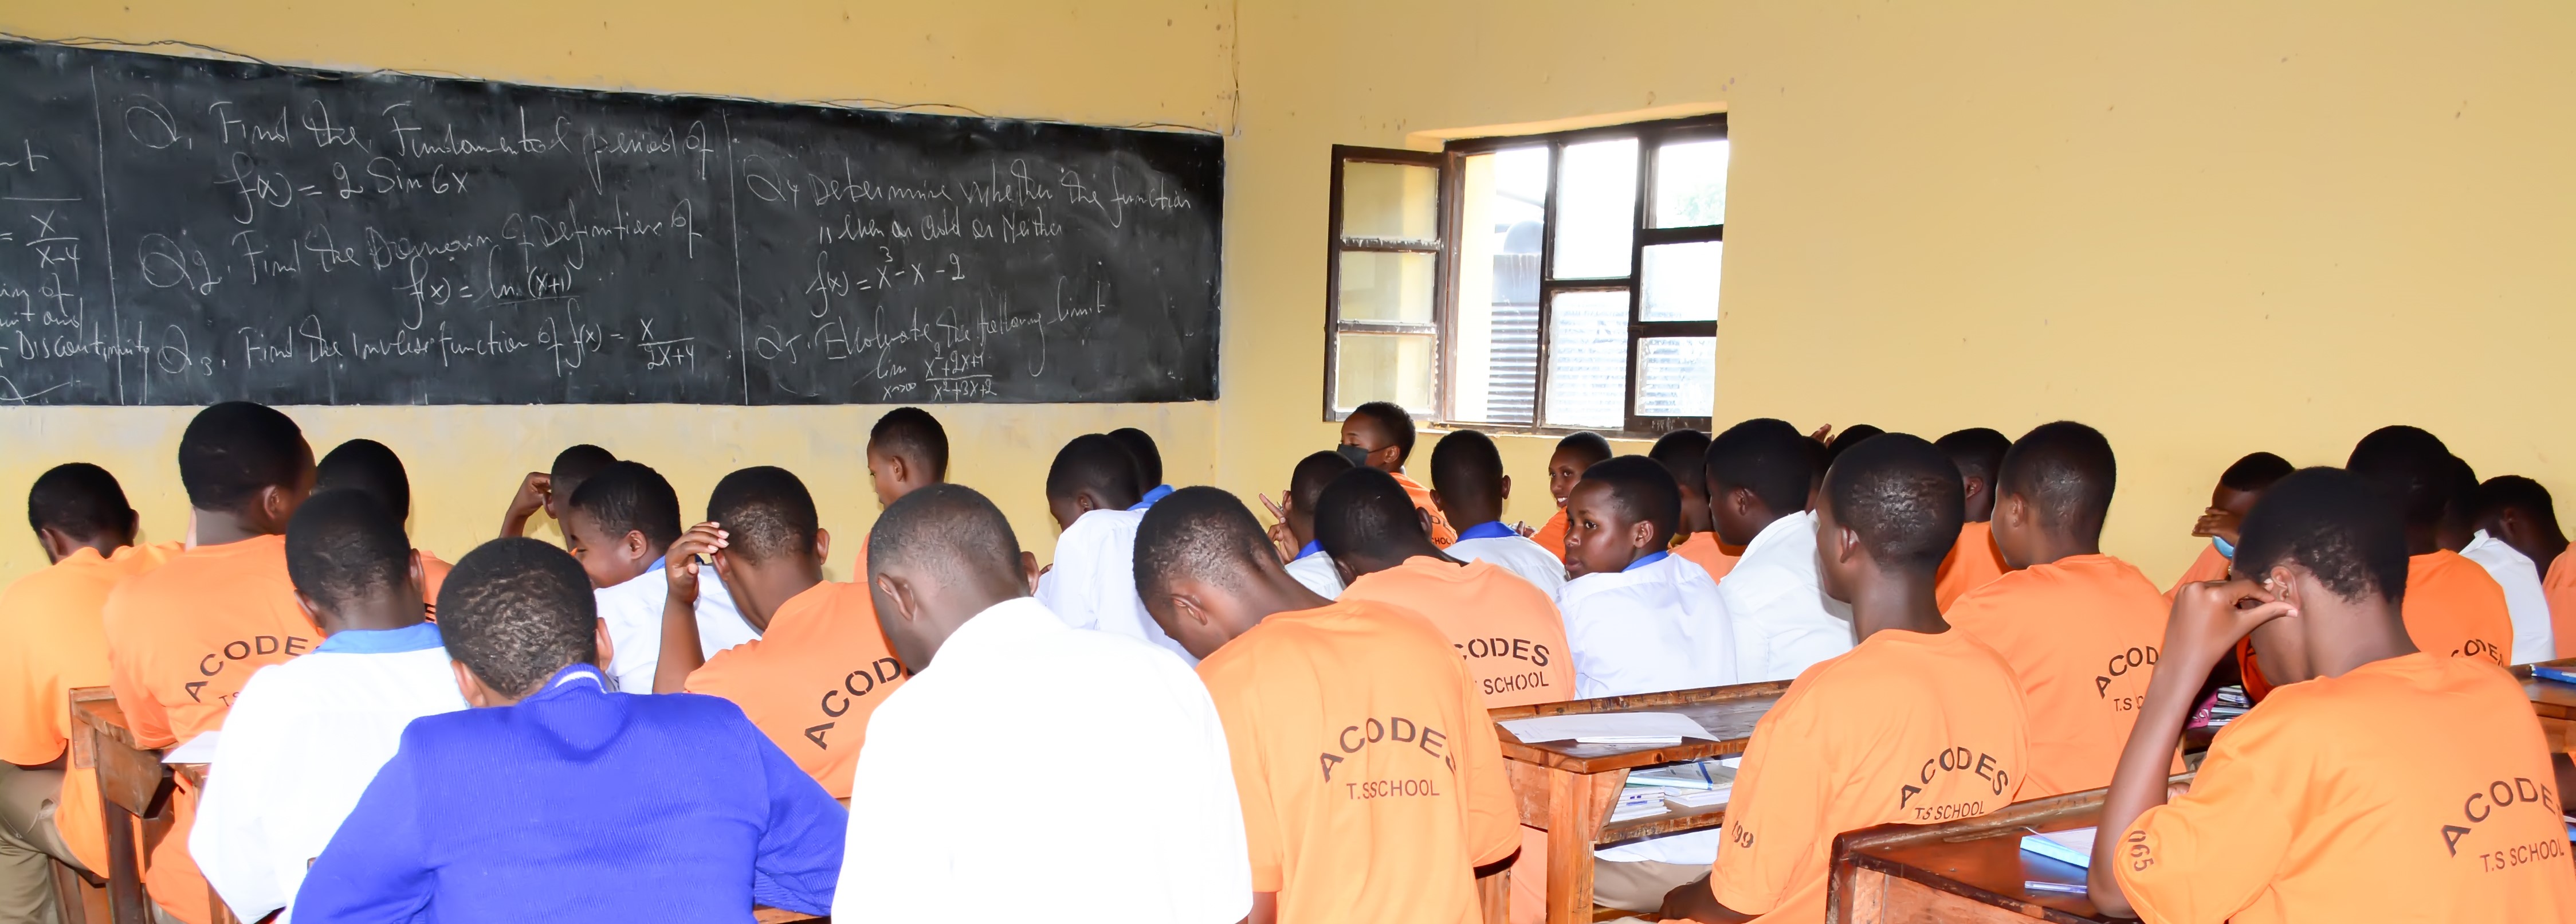 nt
= x/x-4
ing of
Discontinuity
Q1 Find the Fundamental period of
f(x) = 2 Sin 6x
Q2. Find the Domain of Definition of
f(x) = ln (x+1)
Q3. Find the Inverse function of f(x) = x/2x+4
Q4 Determine whether the function
is even or odd or Neither
f(x) = x³ - x - 2
Q5. Evaluate the following limit
lim x→∞ x²+2x+1/x²+3x+2
ACODES
T.S
ACOD
CODES
SCHOOL
ACODES
T.S SCHOOL
ACODES
T.S SCHOOL
199
ACOD
T.S
ACODE
T.S SCHOOL
065